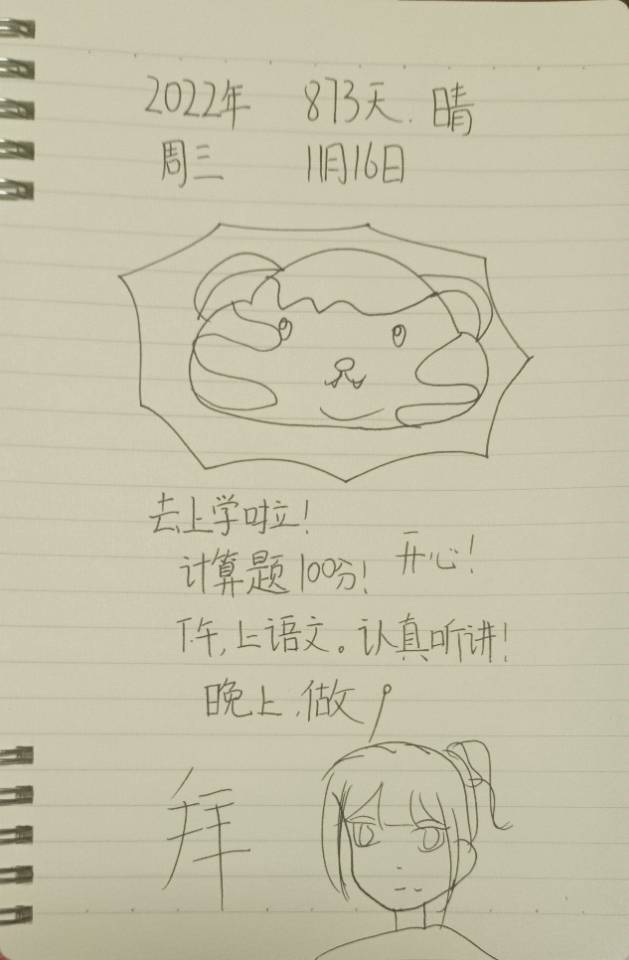 2022年 873天. 晴
周三 11月16日
去上学啦!
计算题100分! 开心!
下午,上语文。认真听讲!
晚上,做